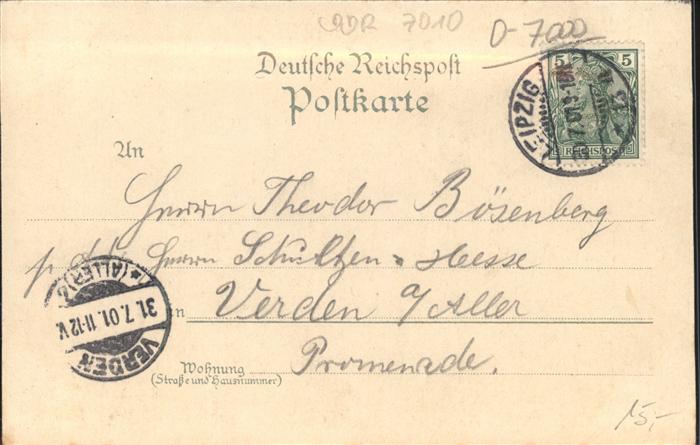 DDR 7010
D-7000
Deutsche Reichspost
Postkarte
5 5
REICHSPOST
LEIPZIG
7.01.9-10V
An
Herrn Theodor Bösenberg
Herrn Schultzen = Hesse
in Verden a/Aller
Promenade.
VERDEN
31.7.01.11-12V.
*(ALLER)
Wohnung
(Straße und Hausnummer)
15,-